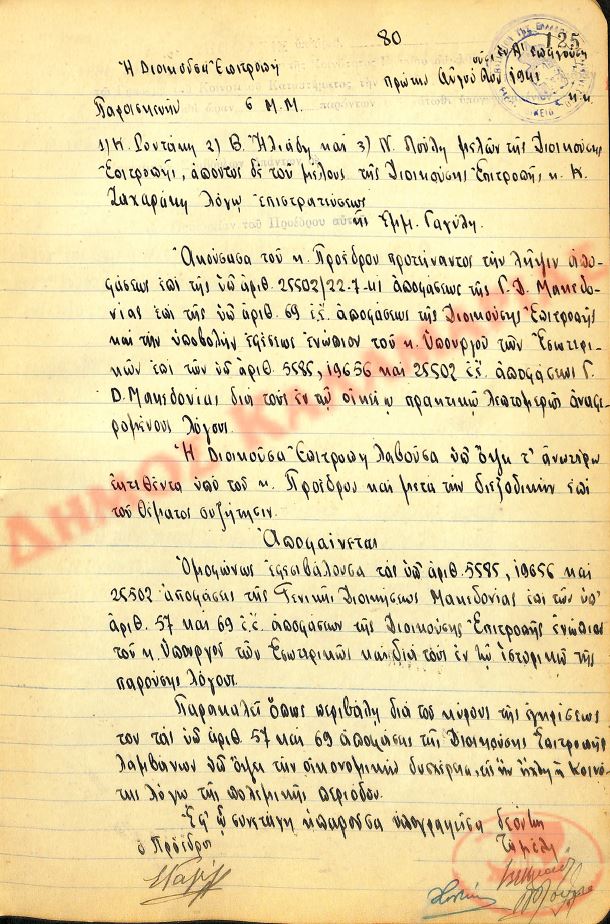 80
125
Ἡ Διοικοῦσα Ἐπιτροπή
πρώτην Αὐγούστου 1941
Παρασκευήν 6 Μ.Μ. κ.κ.
1) Κ. Ροντάκη 2) Β. Ἠλιάδη καὶ 3) Ν. Πούλη μελῶν τῆς Διοικούσης
Ἐπιτροπῆς, ἀπόντος δὲ τοῦ μέλους τῆς Διοικούσης Ἐπιτροπῆς κ. Κ.
Ζαχαράκη λόγῳ ἐπιστρατεύσεως
τῆς Ἐμμ. Γαγύλη.
Ἀκούσασα τοῦ κ. Προέδρου προτείναντος τὴν λῆψιν ἀπο-
φάσεως ἐπὶ τῆς ὑπ' ἀριθ. 25502/22-7-41 ἀποφάσεως τῆς Γ.Δ. Μακεδο-
νίας ἐπὶ τῆς ὑπ' ἀριθ. 69 ἐ.ἔ. ἀποφάσεως τῆς Διοικούσης Ἐπιτροπῆς
καὶ τὴν ὑποβολὴν ἐφέσεως ἐνώπιον τοῦ κ. Ὑπουργοῦ τῶν Ἐσωτερι-
κῶν ἐπὶ τῶν ὑπ' ἀριθ. 5585, 19656 καὶ 25502 ἐ.ἔ. ἀποφάσεως Γ.
Δ. Μακεδονίας διὰ τοὺς ἐν τῷ οἰκείῳ πρακτικῷ λεπτομερῶς ἀναφε-
ρομένους λόγους.
Ἡ Διοικοῦσα Ἐπιτροπὴ λαβοῦσα ὑπ' ὄψει τ' ἀνωτέρω
ἐκτιθέντα ὑπὸ τοῦ κ. Προέδρου καὶ μετὰ τὴν διεξοδικὴν ἐπὶ
τοῦ θέματος συζήτησιν.
Ἀποφαίνεται
Ὁμοφώνως ἐφεσιβάλουσα τὰς ὑπ' ἀριθ. 5585, 19656 καὶ
25502 ἀποφάσεις τῆς Γενικῆς Διοικήσεως Μακεδονίας ἐπὶ τῶν ὑπ'
ἀριθ. 57 καὶ 69 ἐ.ἔ. ἀποφάσεων τῆς Διοικούσης Ἐπιτροπῆς ἐνώπιον
τοῦ κ. Ὑπουργοῦ τῶν Ἐσωτερικῶν καὶ διὰ τοὺς ἐν τῷ ἱστορικῷ τῆς
παρούσης λόγους.
Παρακαλεῖ ὅπως περιβάλῃ διὰ τοῦ κύρους τῆς ἐγκρίσεως
του τὰς ὑπ' ἀριθ. 57 καὶ 69 ἀποφάσεις τῆς Διοικούσης Ἐπιτροπῆς
λαμβάνων ὑπ' ὄψει τὴν οἰκονομικὴν δυσχέρειαν εἰς ἣν ἡ Κοινό-
της λόγῳ τῆς πολεμικῆς περιόδου.
Ἐφ' ᾧ συνετάγη ἡ παροῦσα ὑπογραφεῖσα δεόντως
ὁ Πρόεδρος Τὰ μέλη
ΔΗΜΟΣ ΚΑΛΑΜΑΡΙΑΣ